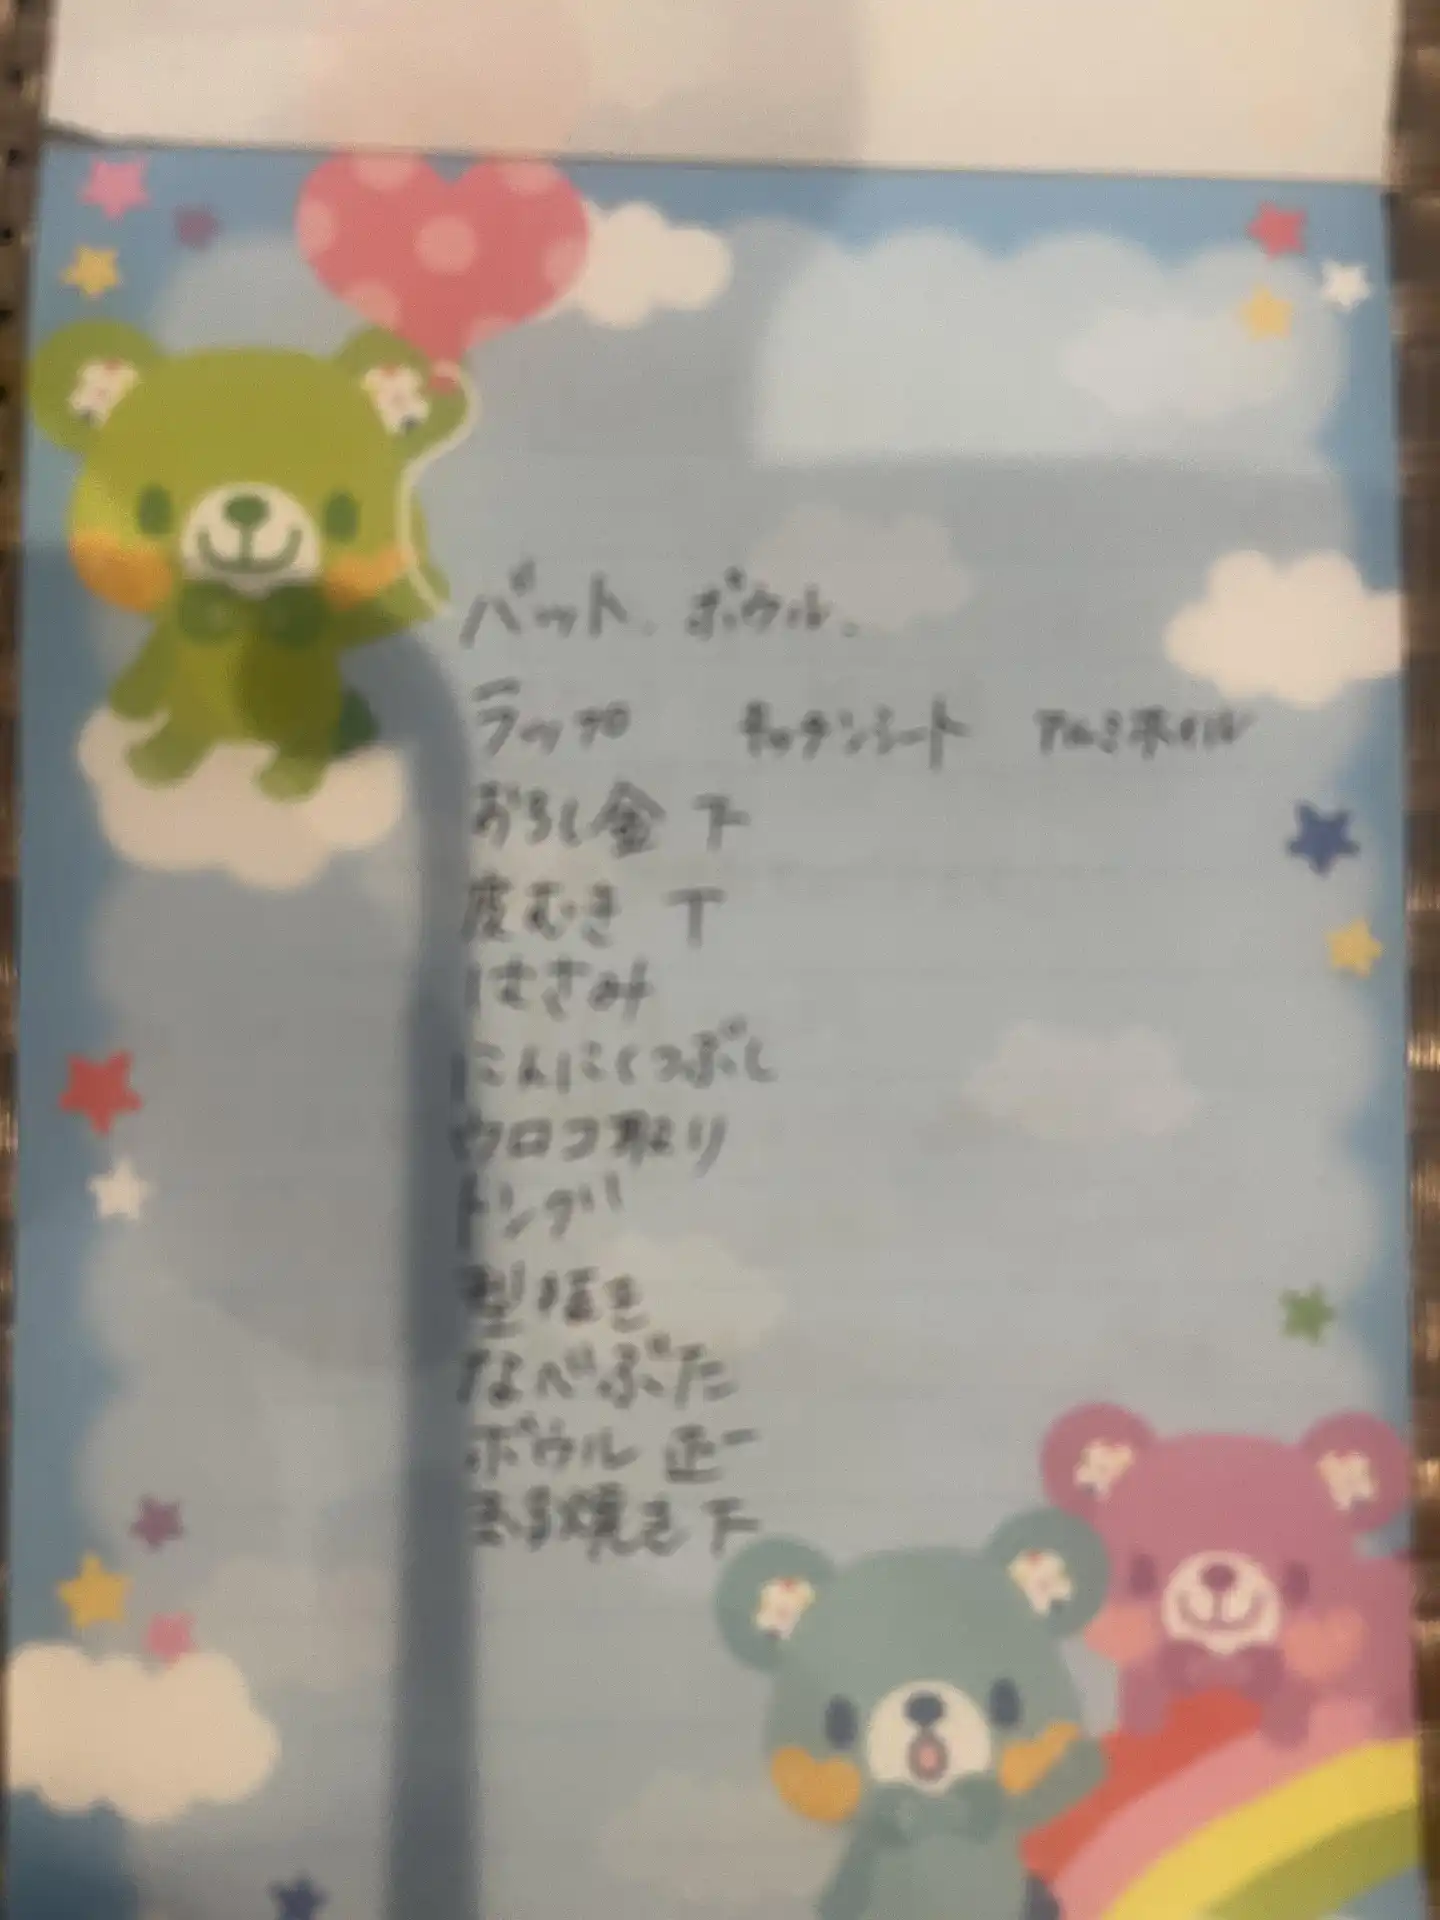 バット、ボウル、
ラップ キッチンシート アルミホイル
おろし金 下
皮むき T
はさみ
にんにくつぶし
ウロコ取り
トング
型抜き
なべぶた
ボウル 正一
玉子焼き 下